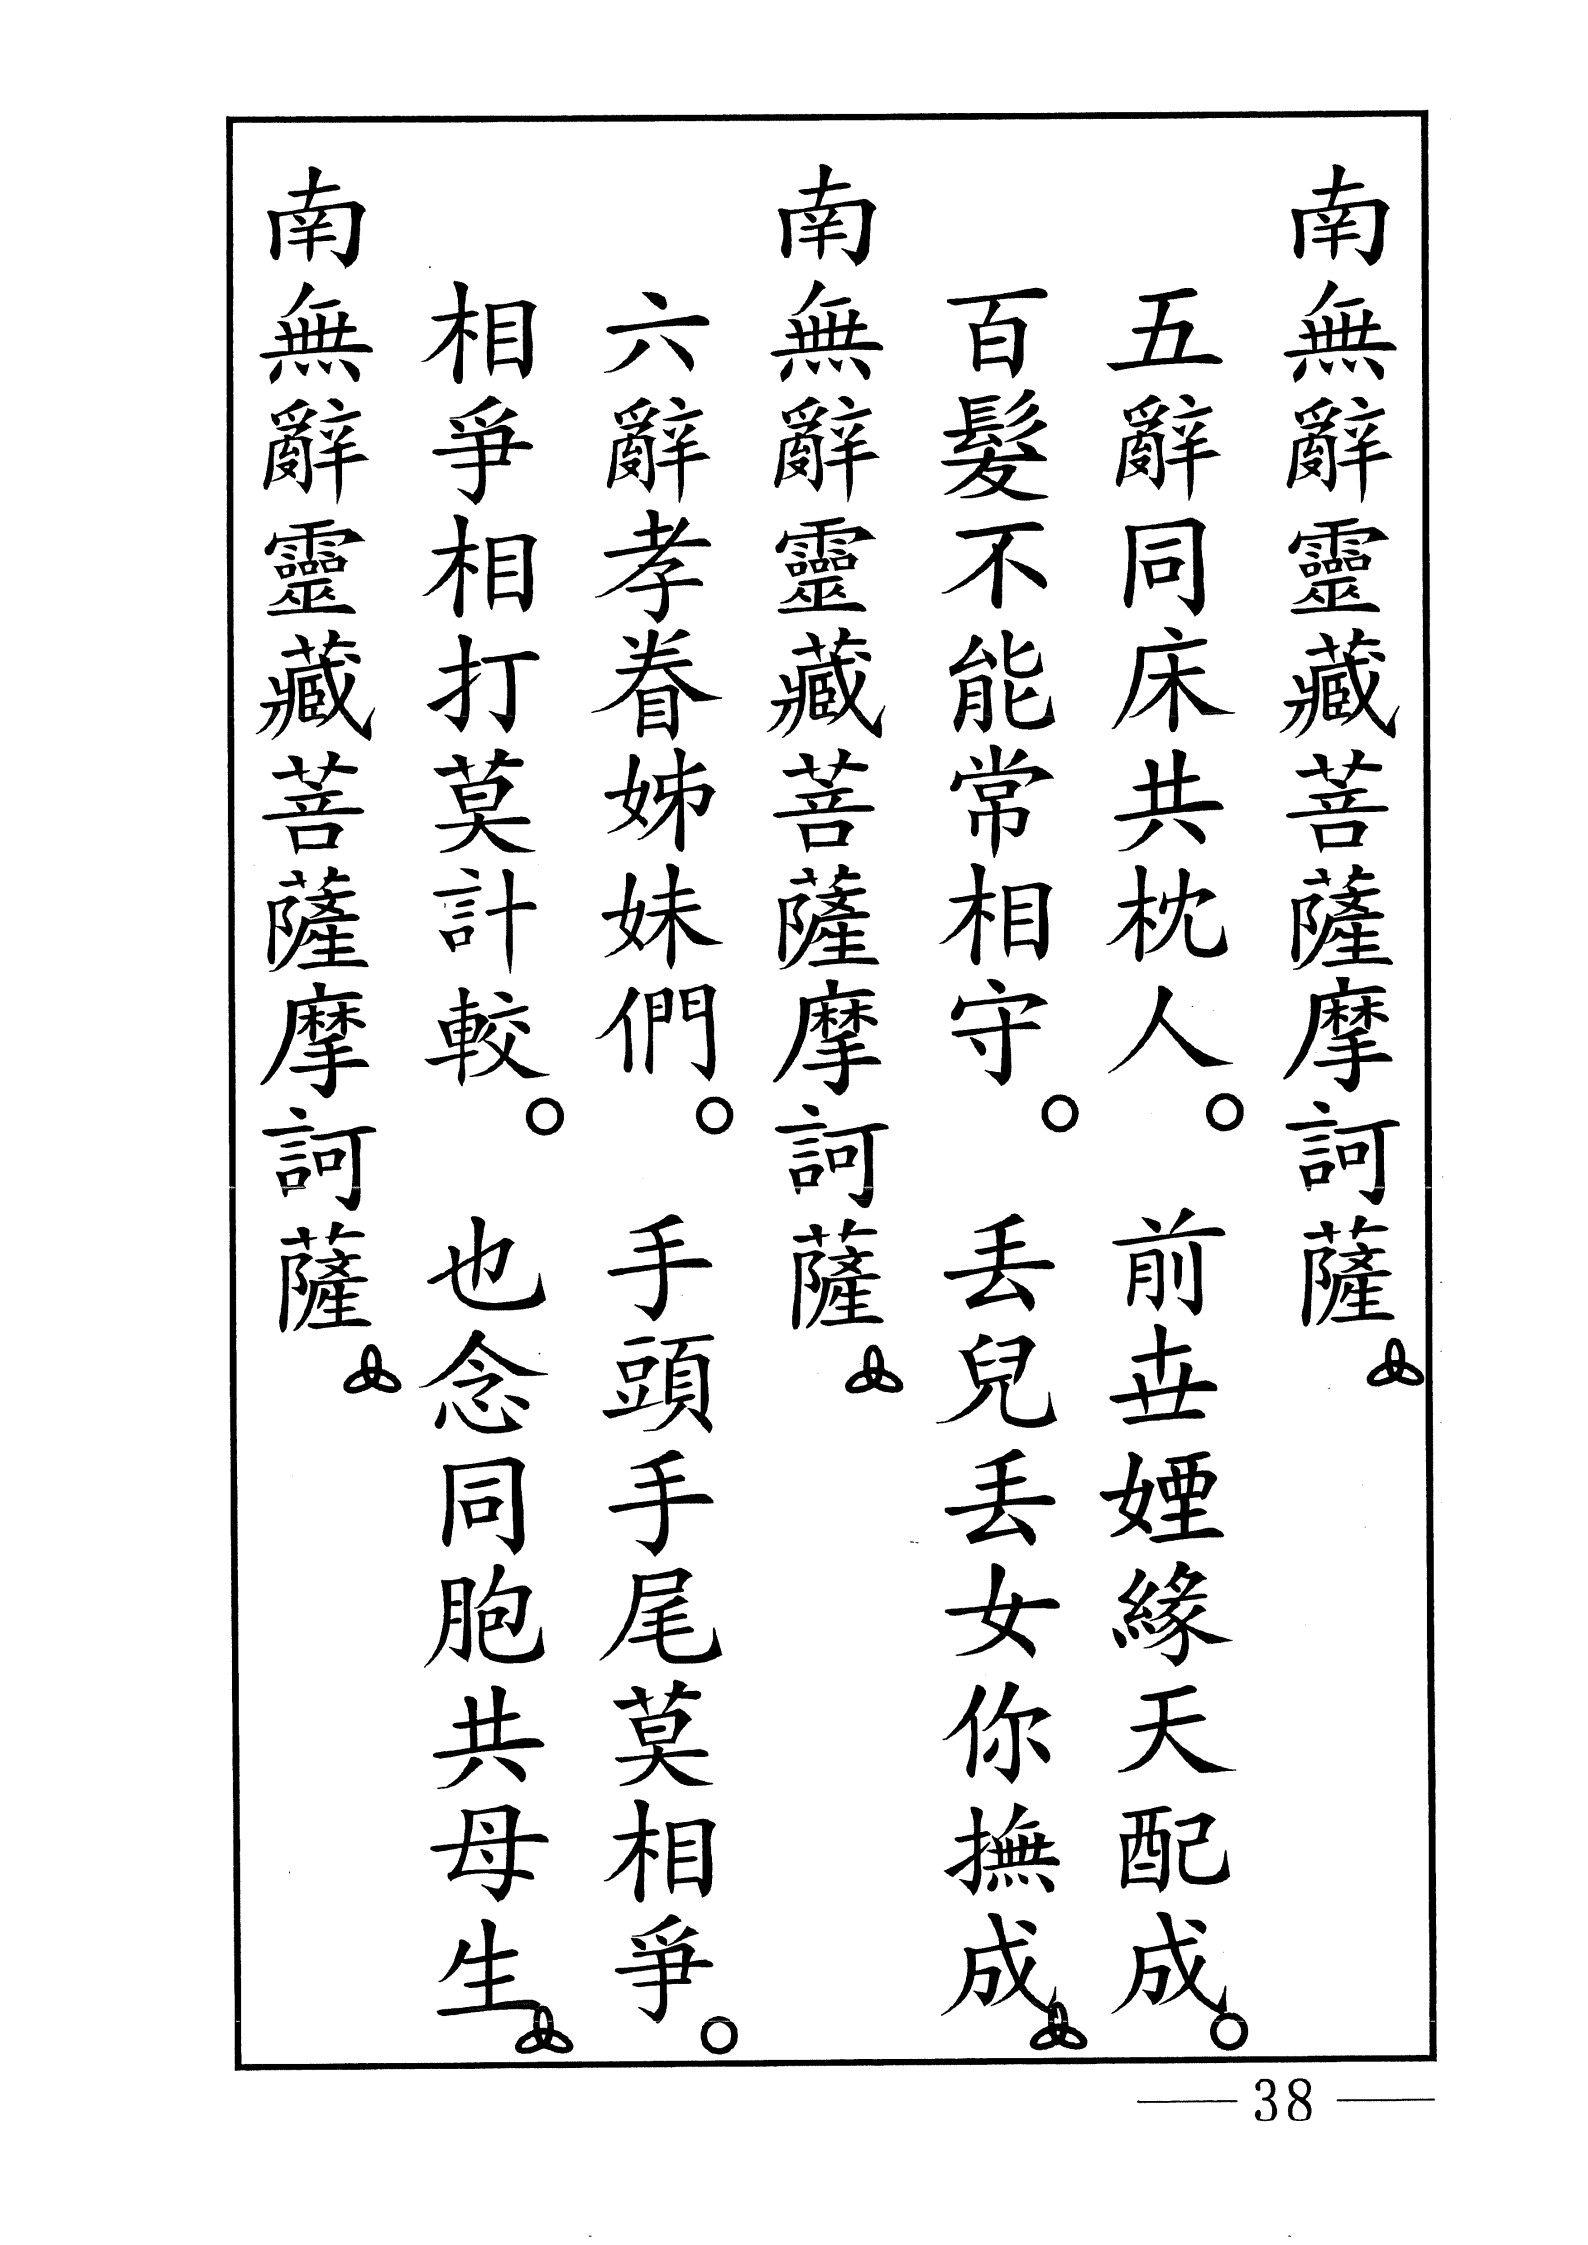 南無辭靈藏菩薩摩訶薩
五辭同床共枕人。 前世姻緣天配成。
百髮不能常相守。 丟兒丟女你撫成
南無辭靈藏菩薩摩訶薩
六辭孝眷姊妹們。 手頭手尾莫相爭。
相爭相打莫計較。 也念同胞共母生
南無辭靈藏菩薩摩訶薩
38